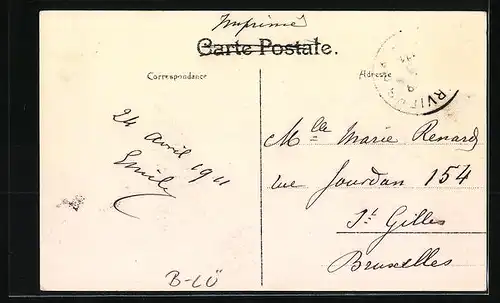 Imprimé
Carte Postale.
Correspondance
Adresse
24 Avril 1911
Emile
Mlle Marie Renard
rue Jourdan 154
St Gilles
Bruxelles
B-LÜ